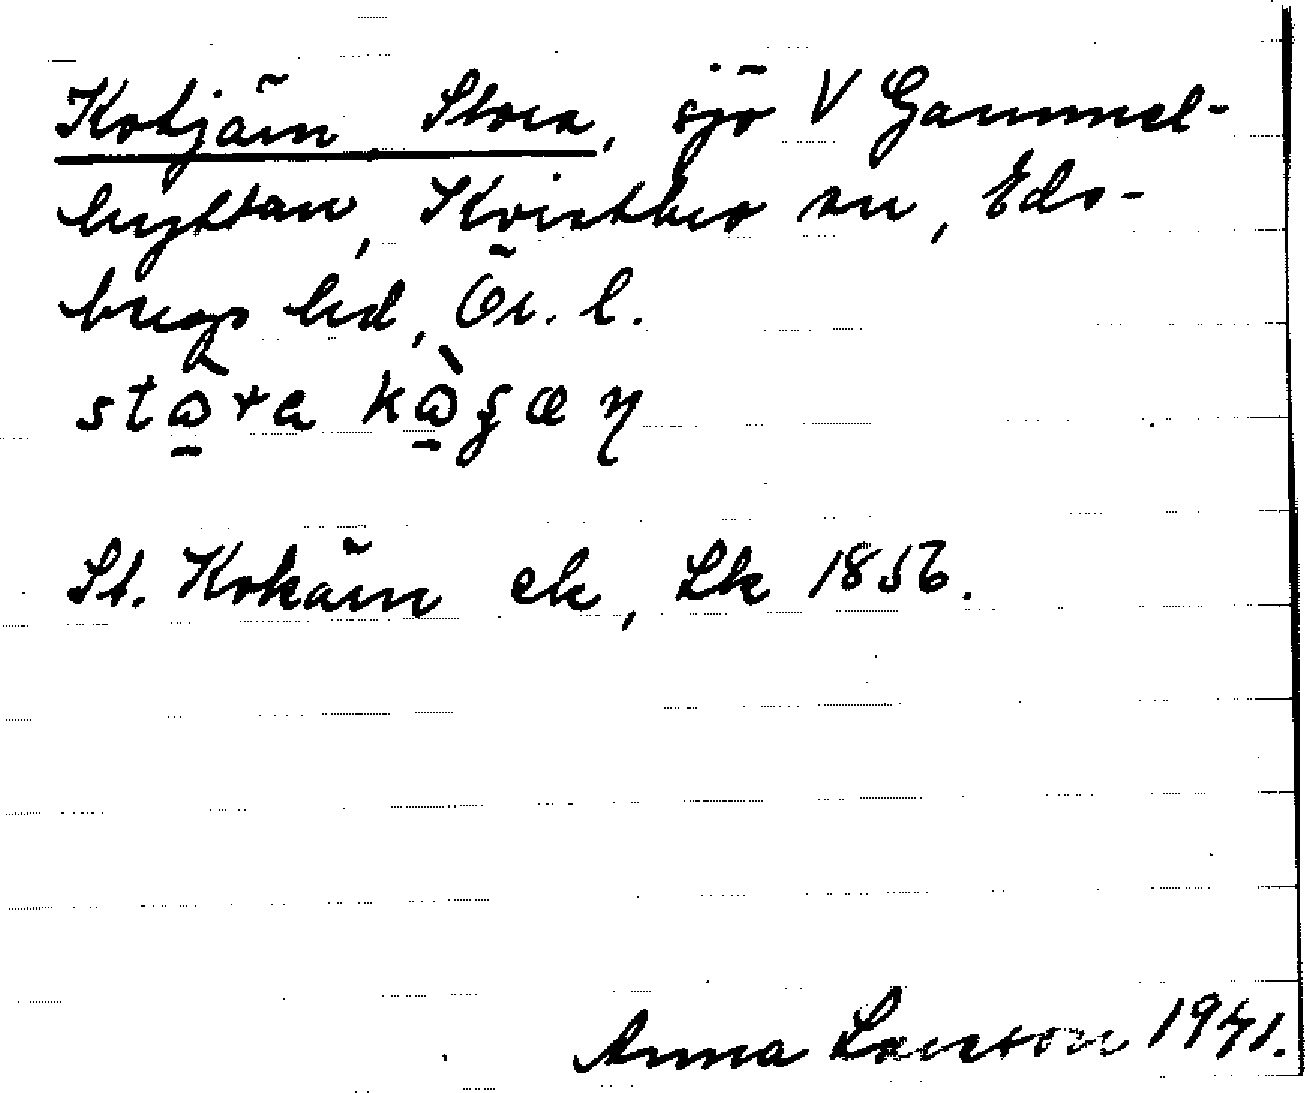 Kotjärn, Stora, sjö V Gammel-
hyttan, Kvistbro sn, Eds-
bergs hd, Ör. l.
stora
St. Kokärn ek, Lk 1856.
Anna Larsson 1941.